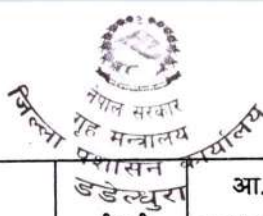 नेपाल सरकार
गृह मन्त्रालय
जिल्ला प्रशासन कार्यालय
डडेल्धुरा
आ.